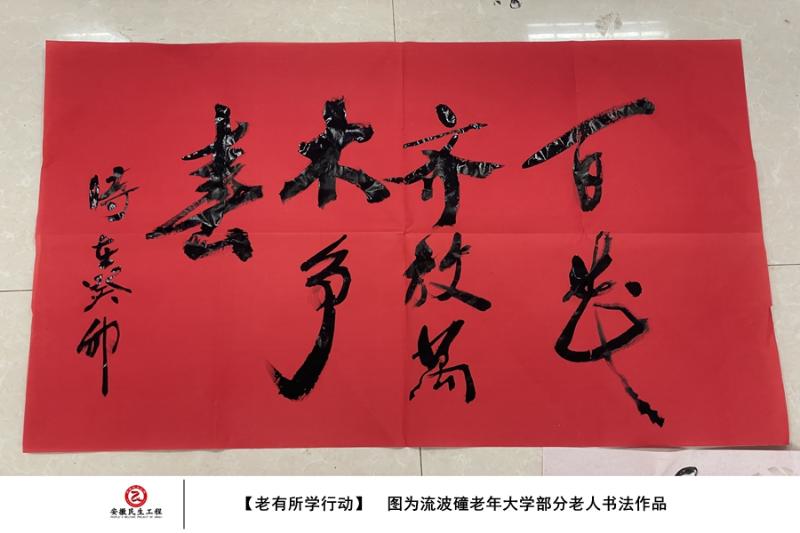 百花
齐放萬
木争
春
時在癸卯
安徽民生工程
【老有所学行动】 图为流波䃥老年大学部分老人书法作品